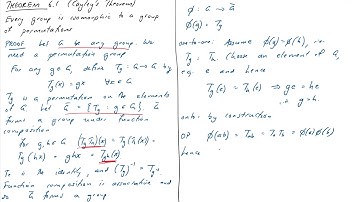 THEOREM 6.1 (Cayley's Theorem)
Every group is isomorphic to a group
of permutations
PROOF Let G be any group. We
need a permutation group
For any g∈G, define Tg : G → G by
Tg(x) = gx ∀x∈G
Tg is a permutation on the elements
of G. Let G̅ = {Tg : g∈G}. G̅
forms a group under function
composition
For g,h∈G (TgTh)(x) = Tg(Th(x)) =
Tg(hx) = ghx = Tgh(x)
Te is the identity, and (Tg)⁻¹ = Tg⁻¹
Function composition is associative and
so G̅ forms a group
φ : G → G̅
φ(g) = Tg
one-to-one: Assume φ(g) = φ(h), i.e.
Tg = Th. Choose an element of G,
e.g. e and hence
Tg(e) = Th(e) ⇒ ge = he
i.e. g = h.
onto: by construction
OP φ(ab) = Tab = TaTb = φ(a)φ(b)
hence